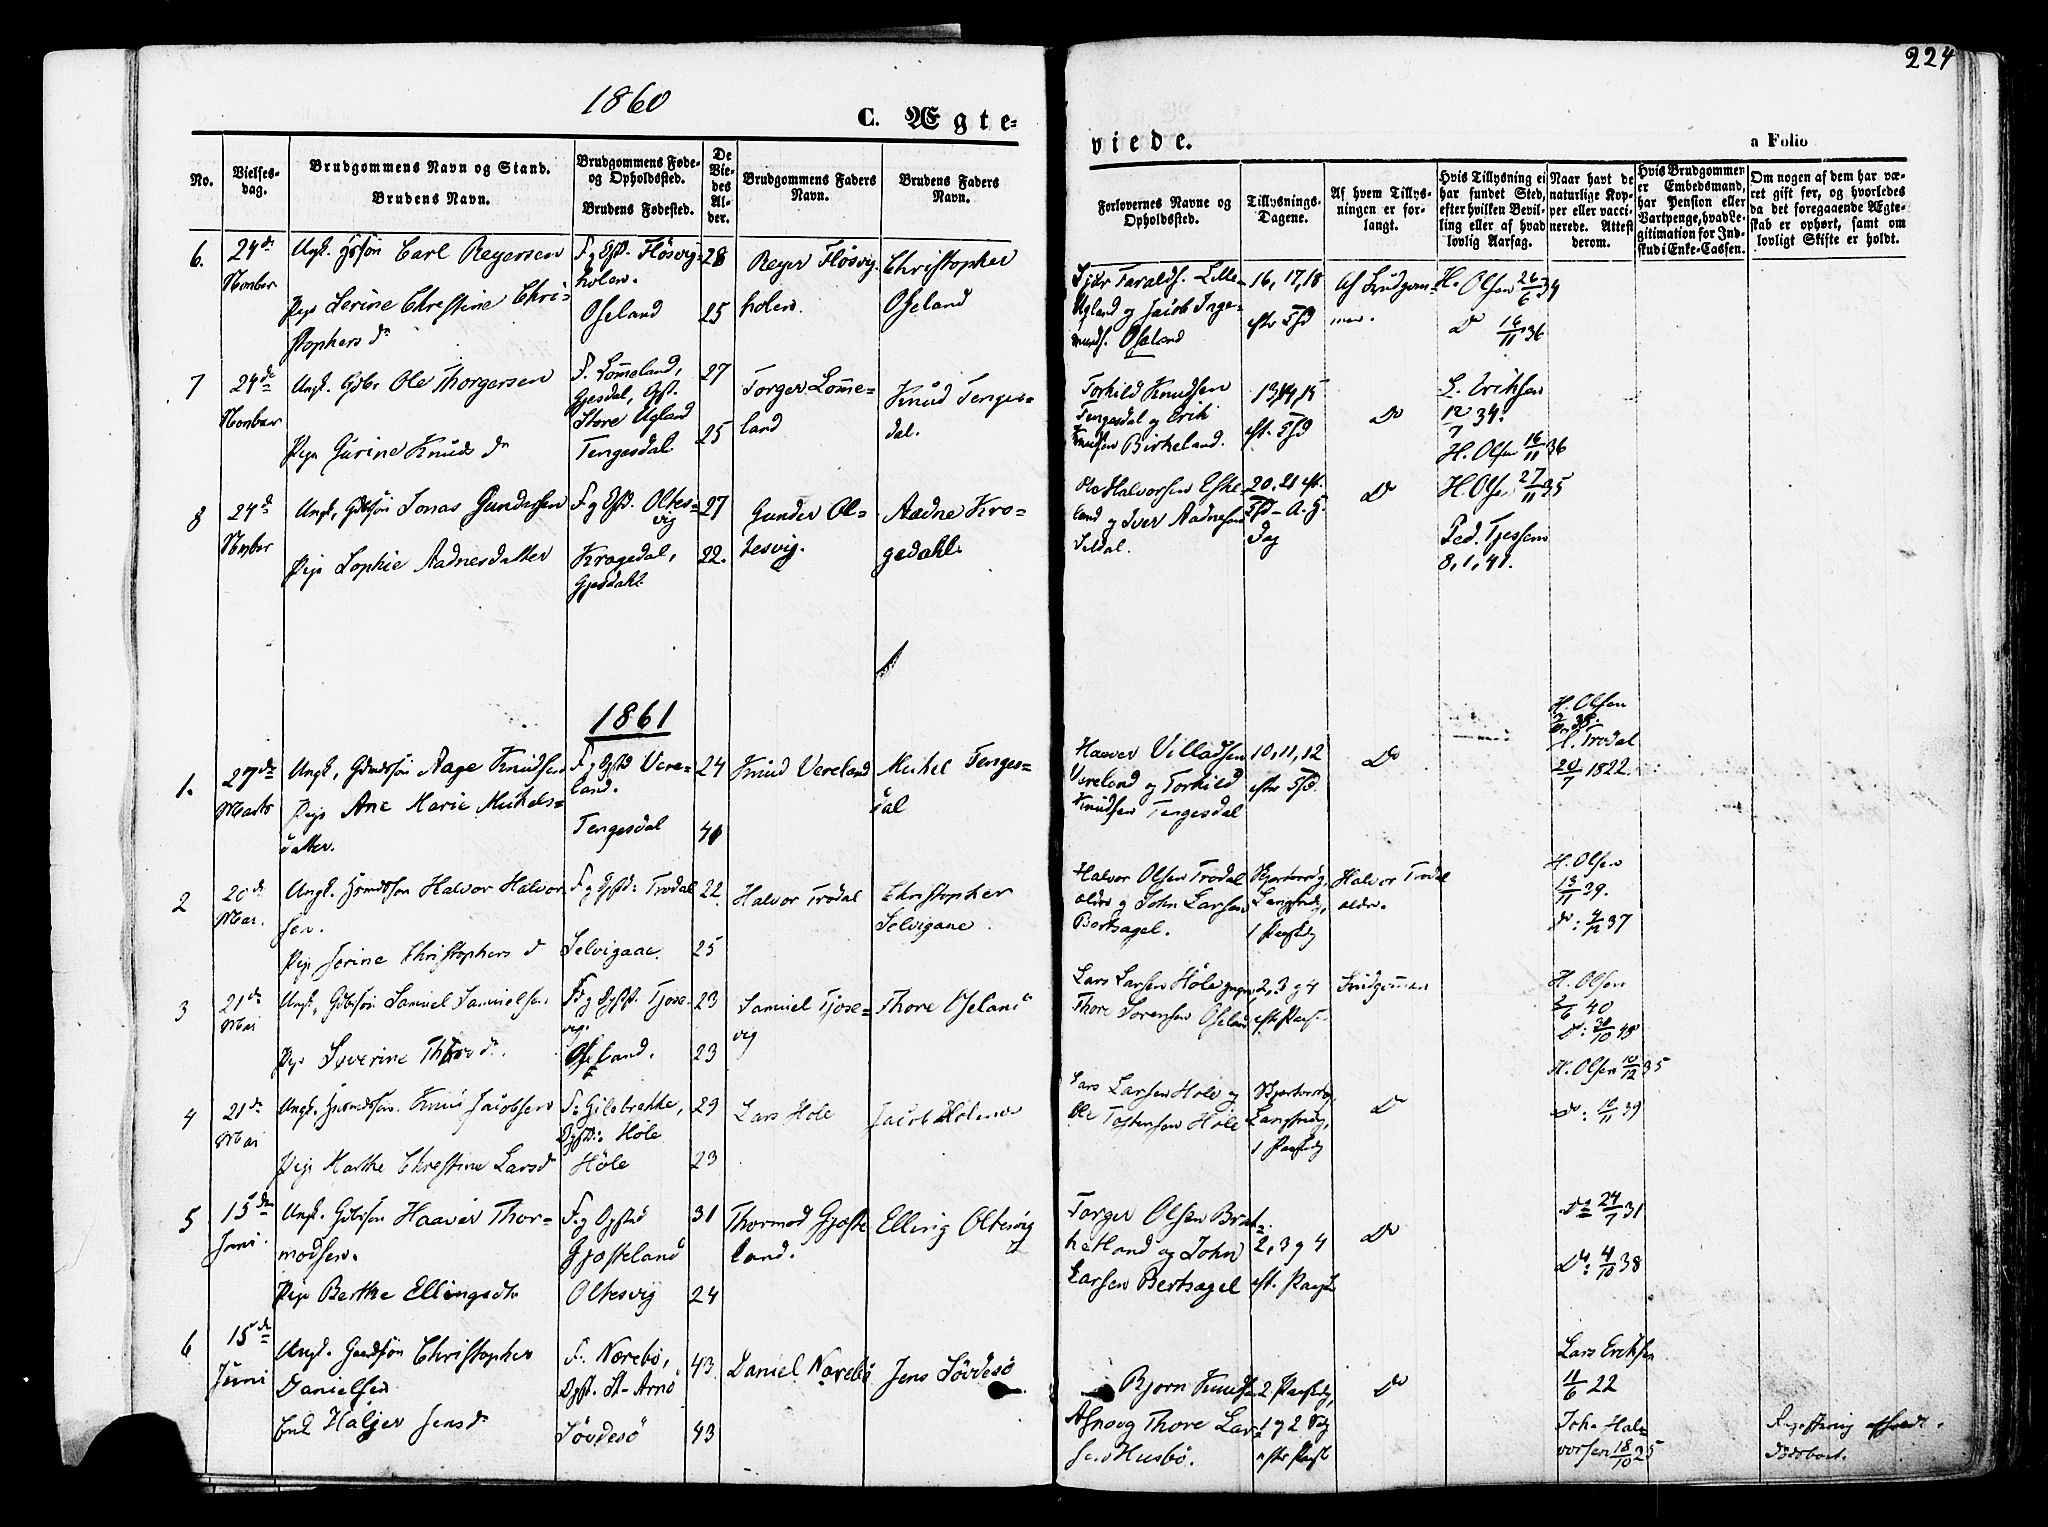 224
1860
C. Ægteviede.
a Folio
No.
Vielses-
dag.
Brudgommens Navn og Stand.
Brudens Navn.
Brudgommens Føde-
og Opholdssted.
Brudens Fødested.
De
Vie-
des
Al-
der.
Brudgommens Faders
Navn.
Brudens Faders
Navn.
Forlovernes Navne og
Opholdssted.
Tillysnings-
Dagene.
Af hvem Tillys-
ningen er for-
langt.
Hvis Tillysning ei
har fundet Sted,
efter hvilken Bevil-
ling eller af hvad
lovlig Aarsag.
Naar havt de
naturlige Kop-
per eller vacci-
nerede. Attest
derom.
Hvis Brudgommen
er Embedsmand,
har Pension eller
Vartpenge, hvad Le-
gitimation for Ind-
skud i Enke-Cassen.
Om nogen af dem har væ-
ret gift før, og hvorledes
da det foregaaende Ægte-
skab er ophørt, samt om
lovligt Skifte er holdt.
6.
24de
Novber
Ungk. Carl Reyersen
Pige Serine Christine Chri-
stophers d
F. og Opst. Flösvig-
holen.
Oseland
28
25
Reyer Flösvig-
holen.
Christopher
Oseland
Taralds. Lille
Ugland og Jacob Inge-
munds. Oseland
16, 17, 18
eftr Tfd
Af Brudgom-
men.
H. Olsen 26/6 34
Do 16/11 36
7
24de
Novber
Ungk. Gbr Ole Thorgersen
Pige Gurine Knuds d
F. Lomeland,
Gjesdal, Opst.
Store Ugland
Tengesdal
27
25
Torger Lome-
land
Knud Tenges-
dal.
Torkild Knudsen
Tengesdal og Erik
Knudsen Birkeland.
13, 14, 15
eft. Tfd
Do
L. Eriksen
12/7 34.
H. Olsen 16/11 36
8
24de
Novber
Ungk, Gbrsön Jonas Gundersen
Pige Sophie Aadnesdatter
F. og Opst. Oltes-
vig
Kragedal,
Gjesdahl
27
22.
Gunder Ol-
tesvig.
Aadne Kra-
gedahl.
Ole Halvorsen Eske-
land og Iver Aadnesen
Seldal.
20, 21 eft.
Tfd - A. H.
Dag
Do
H. Olsen 27/11 35
Ped. Tjessem
8, 1, 41.
1861
1.
27de
Marts
Ungk, Aage Knudsen
Pige Ane Marie Mikels-
datter.
F. og Opst Vere-
land.
Tengesdal
24
40
Knud Vereland
Mikel Tenges-
dal
Haaver Villadsen
Vereland og Torkild
Knudsen Tengesdal
10, 11, 12
eftr Tfd.
Do
H. Olsen
H. Trodal
20/7 1822.
2
20de
Mai.
Ungk. Halvor Halvor-
sen.
Pige Serine Christophers d
F. og Opst: Trodal
Selvigaae.
22
25
Halvor Trodal
Christopher
Selvigane
Halvor Olsen Trodal
ældre og John Larsen
Bertsagel.
Skjertorsdg,
Langfredg,
1 Paaskedg
Halvor Trodal
ældr.
H. Olsen
13/11 39.
do: 4/12 37
3
21de
Mai
Ungk, Gbrsön Samuel Samuelsen
Pige Severine Thores d.
F. og Opst. Tjose-
vig.
Oseland.
23
23
Samuel Tjose-
vig
Thore Oseland
Lars Larsen Höle yngre
Thore Sorensen Oseland
2, 3 og 4
eftr Paas-
Brudgommen
H. Olsen
2/6 40
Do: 30/10 48
4
21de
Mai
Ungk. Husmdsön. Knud Jacobsen
Pige Marthe Christine Larsd
F: Gilebrekke,
Opst: Höle
Höle
29
23
Lars Hole
Jacob Holmen
Lars Larsen Hole og
Ole Tostensen Hole
Skjertorsdg,
Langfredg,
1 Paaskedg
Do
H. Olsen 10/12 35
Do: 10/11 39
5
15de
Juni.
Ungk. Gbrsön Haaver Thor-
modsen.
Pige Berthe Ellingsdtr
F. og Opsted
Gjosteland
Oltesvig
31
24
Thormod Gjoste-
land.
Elling Oltesvig
Torger Olsen Brat-
hetland og John
Larsen Bertsagel
2, 3 og 4
eft. Paaske
Do
Do 24/7 31
Do: 4/10 38
6
15de
Juni
Ungk. Christopher
Danielsen
Enk Jens d
F: Nærebö,
Opst. St. Arnö
Sövdesö
43
43
Daniel Nærebö
Jens Sövdesö
Bjorn Knuds
Asnoog Thore Lar-
sen Husbö.
2 Paaskedg,
1 og 2 Sdg
efter Paask
Do
Lars Eriksen
11/6 22
John Hal-
vorsen 18/10 25